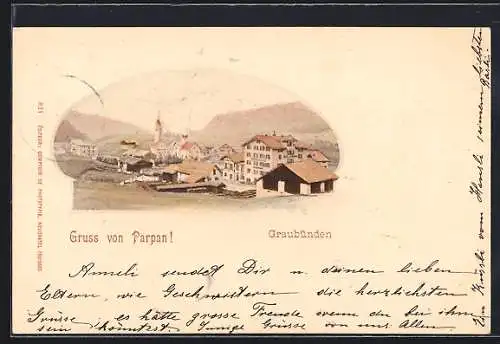 Gruss von Parpan!
Graubünden
Anneli sendet Dir u. deinen lieben
Eltern, wie Geschwistern die herzlichsten
Grüsse, es hätte grosse Freude wenn du bei ihm
sein könntest. Innige Grüsse von uns Allen.
vom Hansle seinem liebsten